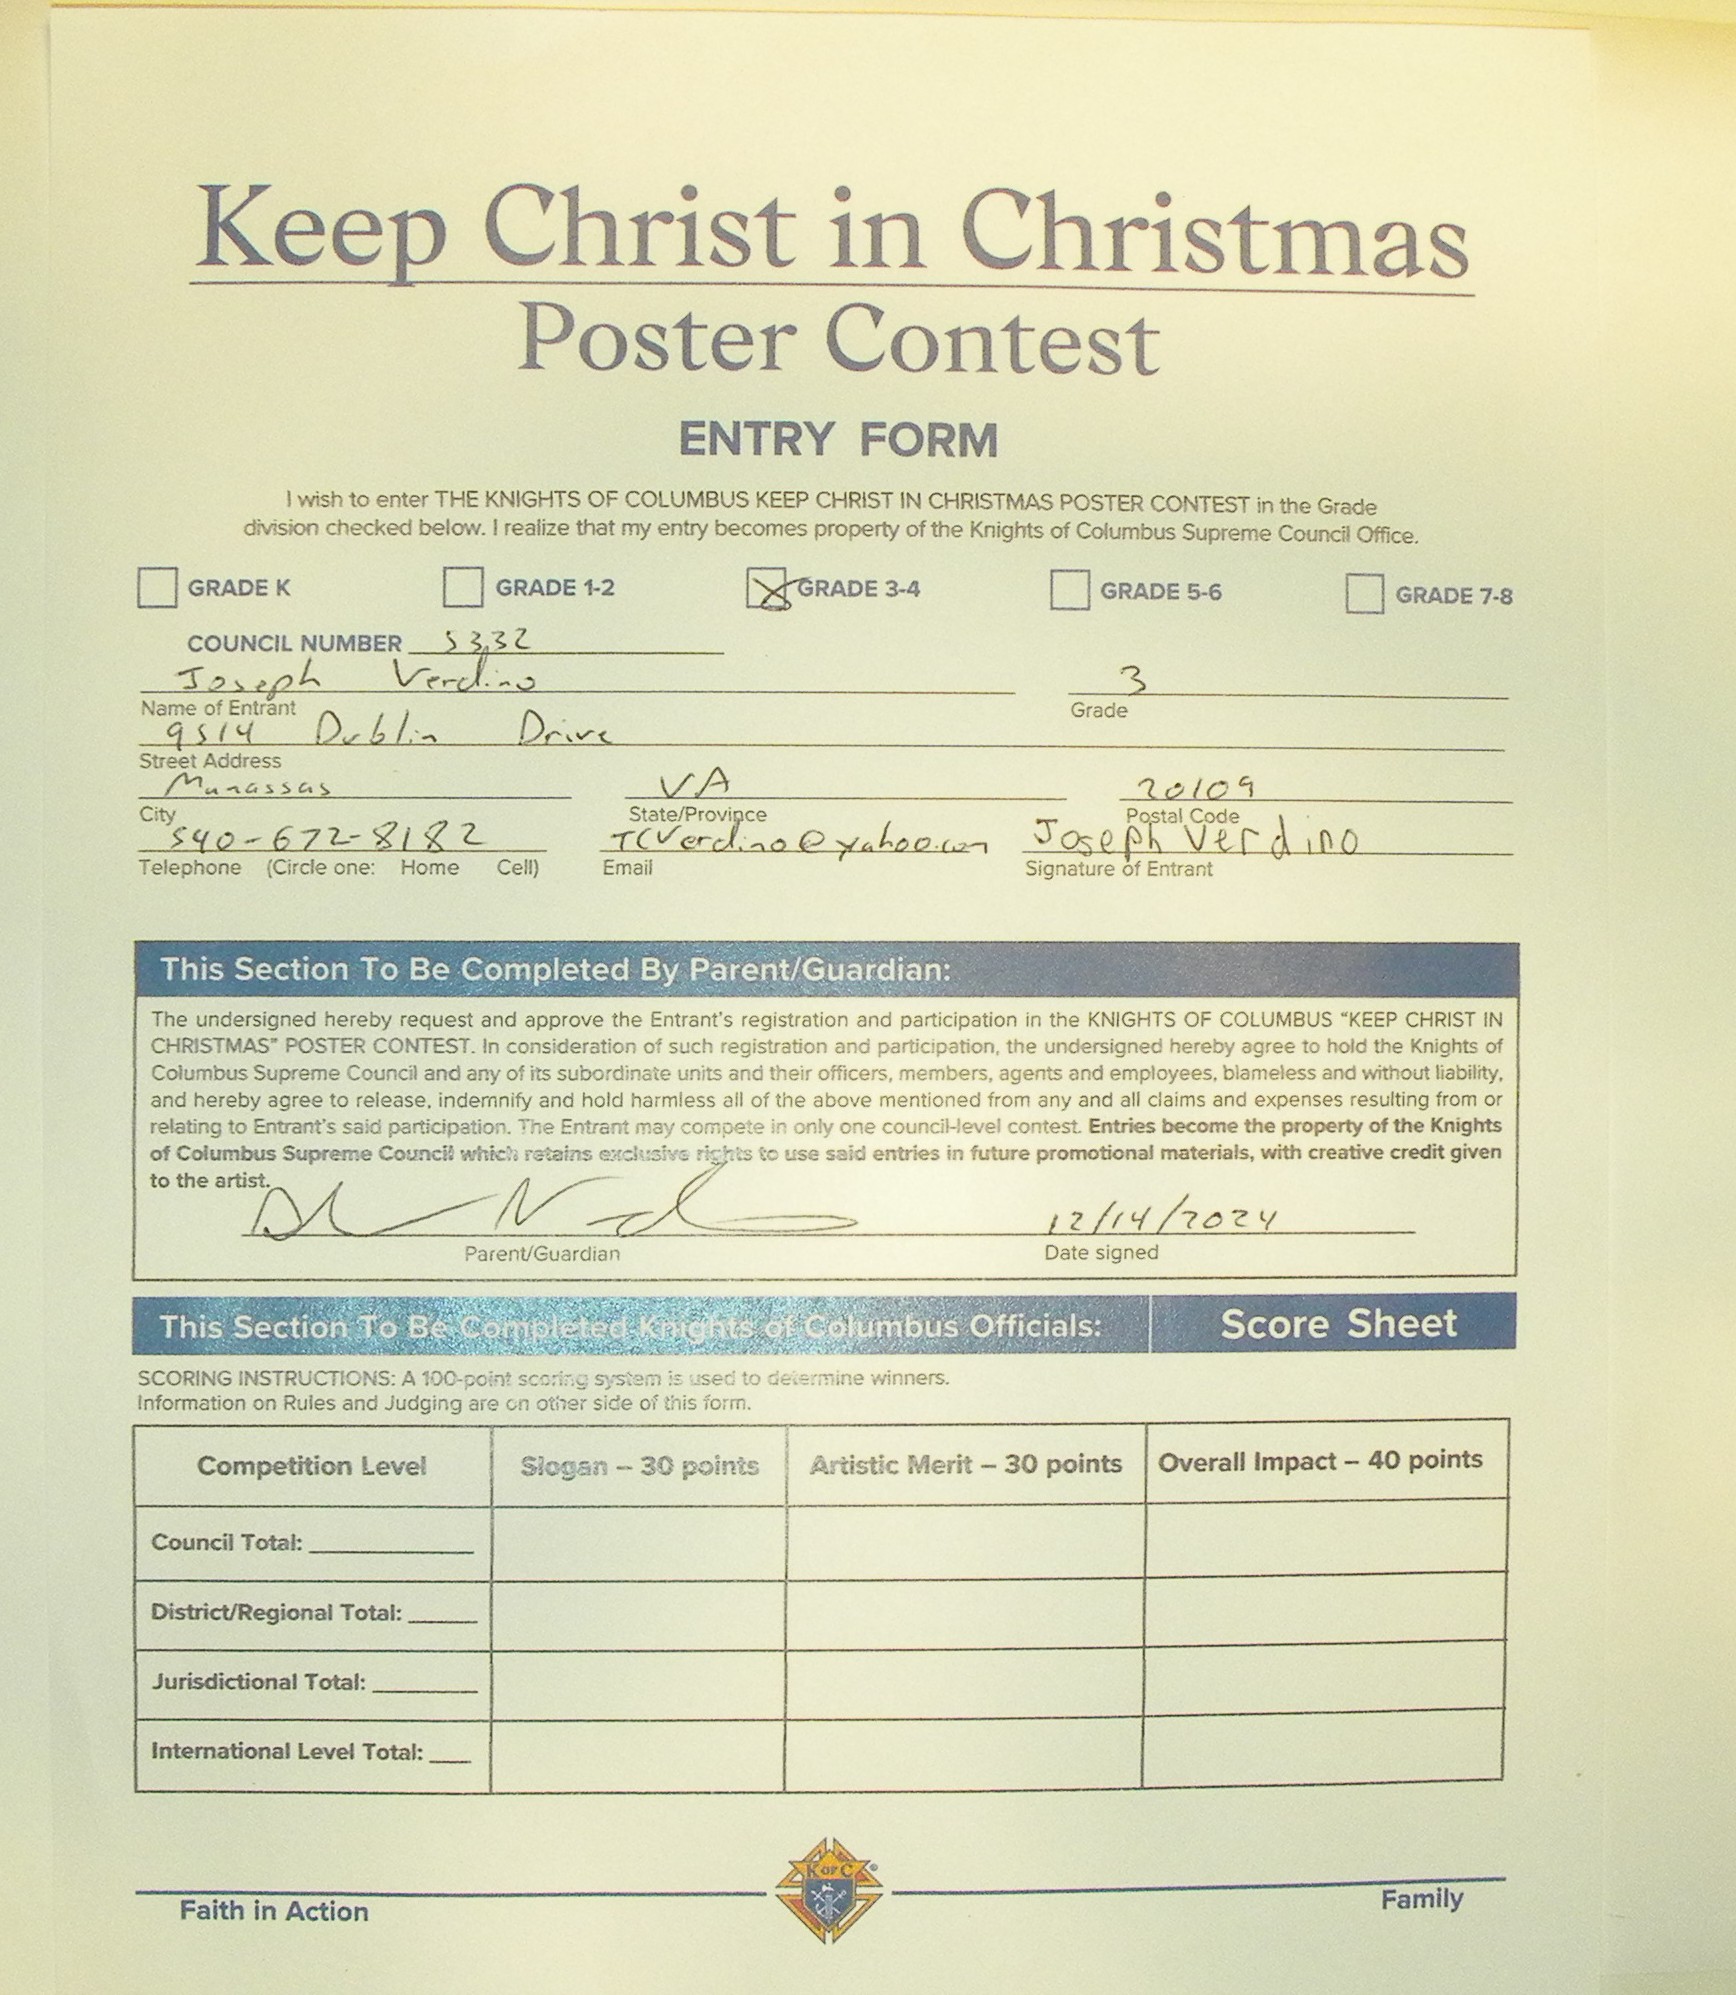 Keep Christ in Christmas
Poster Contest
ENTRY FORM
I wish to enter THE KNIGHTS OF COLUMBUS KEEP CHRIST IN CHRISTMAS POSTER CONTEST in the Grade
division checked below. I realize that my entry becomes property of the Knights of Columbus Supreme Council Office.
GRADE K GRADE 1-2 GRADE 3-4 GRADE 5-6 GRADE 7-8
COUNCIL NUMBER 5332
Joseph Verdino 3
Name of Entrant Grade
9514 Dublin Drive
Street Address
Manassas VA 20109
City State/Province Postal Code
540-672-8182 TCVerdino@yahoo.com Joseph Verdino
Telephone (Circle one: Home Cell) Email Signature of Entrant
This Section To Be Completed By Parent/Guardian:
The undersigned hereby request and approve the Entrant's registration and participation in the KNIGHTS OF COLUMBUS "KEEP CHRIST IN
CHRISTMAS" POSTER CONTEST. In consideration of such registration and participation, the undersigned hereby agree to hold the Knights of
Columbus Supreme Council and any of its subordinate units and their officers, members, agents and employees, blameless and without liability,
and hereby agree to release, indemnify and hold harmless all of the above mentioned from any and all claims and expenses resulting from or
relating to Entrant's said participation. The Entrant may compete in only one council-level contest. Entries become the property of the Knights
of Columbus Supreme Council which retains exclusive rights to use said entries in future promotional materials, with creative credit given
to the artist.
12/14/2024
Parent/Guardian Date signed
This Section To Be Completed Knights of Columbus Officials: Score Sheet
SCORING INSTRUCTIONS: A 100-point scoring system is used to determine winners.
Information on Rules and Judging are on other side of this form.
Competition Level Slogan – 30 points Artistic Merit – 30 points Overall Impact – 40 points
Council Total:
District/Regional Total:
Jurisdictional Total:
International Level Total:
K OF C ®
Faith in Action Family